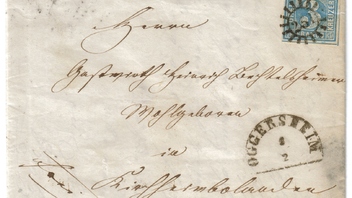 Herrn
KREUZER
Gastwirth Heinrich Bechtelsheimer
Wohlgeboren
in
OGGERSHEIM
8
2
Kirchheimbolanden